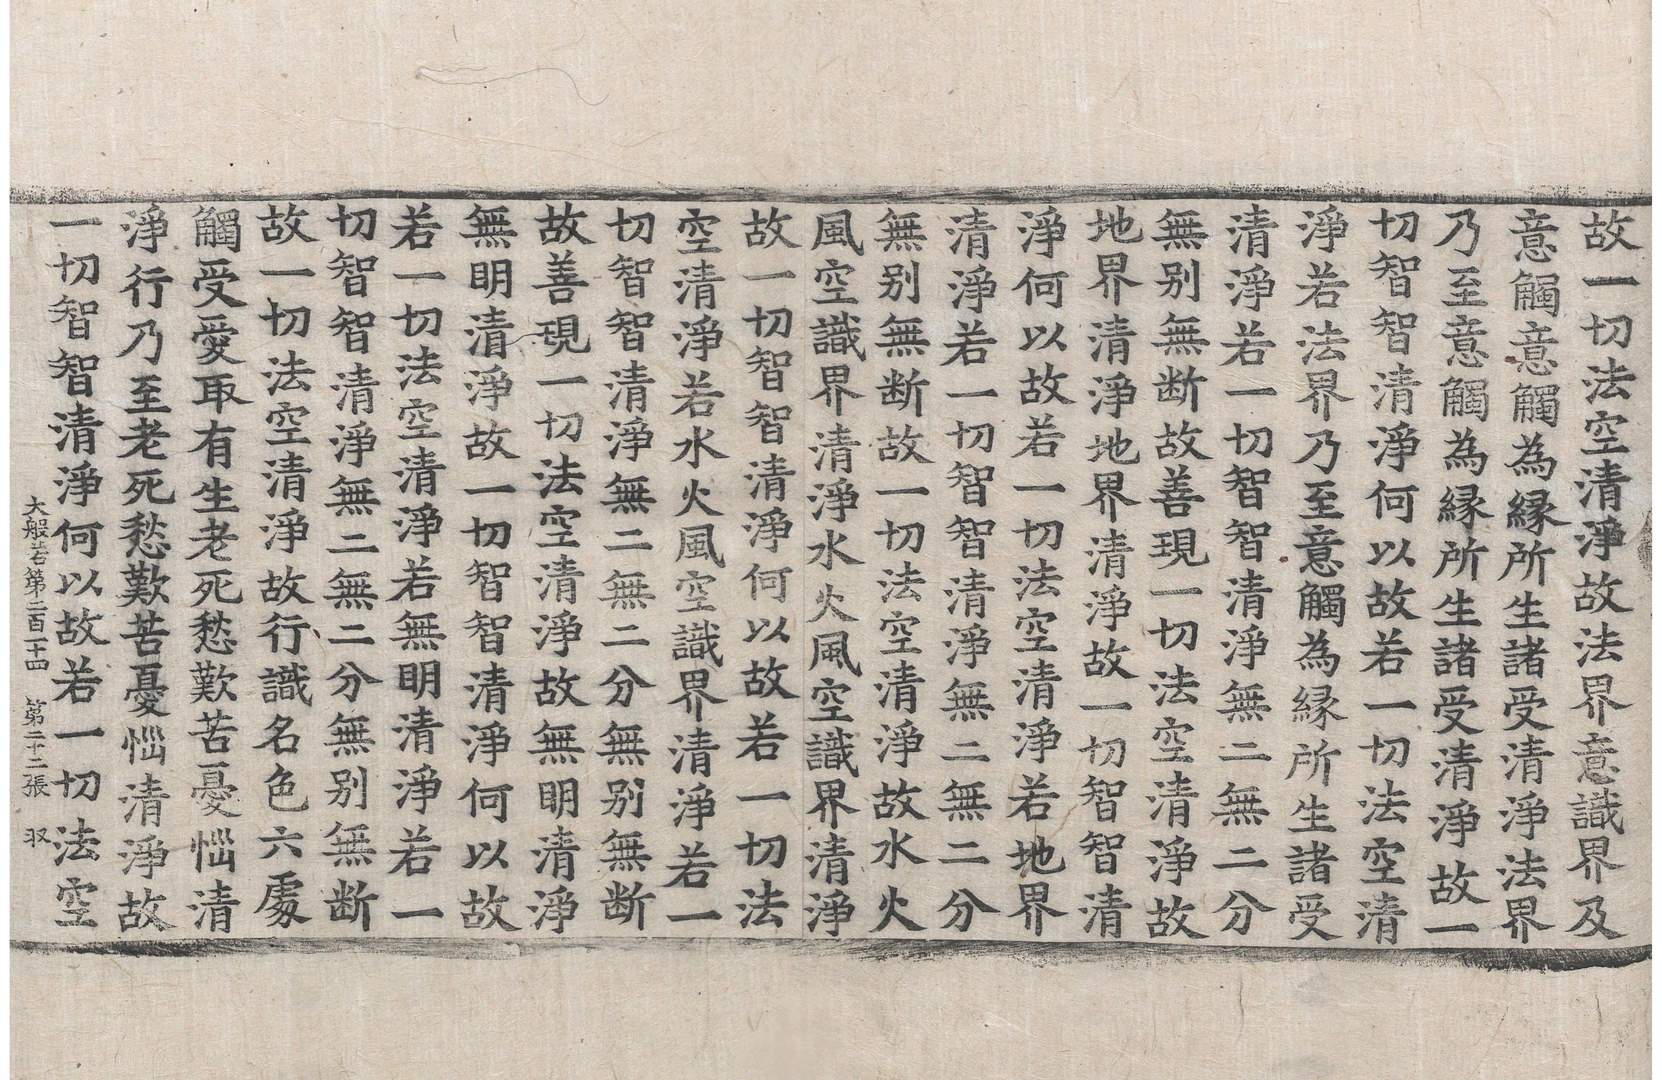 故一切法空清淨故法界意識界及
意觸意觸為縁所生諸受清淨法界
乃至意觸為縁所生諸受清淨故一
切智智清淨何以故若一切法空清
淨若法界乃至意觸為縁所生諸受
清淨若一切智智清淨無二無二分
無别無断故善現一切法空清淨故
地界清淨地界清淨故一切智智清
淨何以故若一切法空清淨若地界
清淨若一切智智清淨無二無二分
無别無断故一切法空清淨故水火
風空識界清淨水火風空識界清淨
故一切智智清淨何以故若一切法
空清淨若水火風空識界清淨若一
切智智清淨無二無二分無别無断
故善現一切法空清淨故無明清淨
無明清淨故一切智智清淨何以故
若一切法空清淨若無明清淨若一
切智智清淨無二無二分無别無断
故一切法空清淨故行識名色六處
觸受愛取有生老死愁歎苦憂惱清
淨行乃至老死愁歎苦憂惱清淨故
一切智智清淨何以故若一切法空
大般若第二百一十四 第二十二張 収